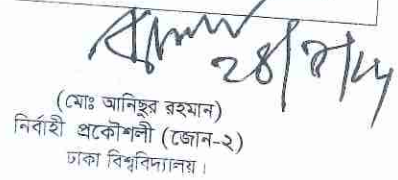 (মোঃ আনিছুর রহমান)
নির্বাহী প্রকৌশলী (জোন-২)
ঢাকা বিশ্ববিদ্যালয়।